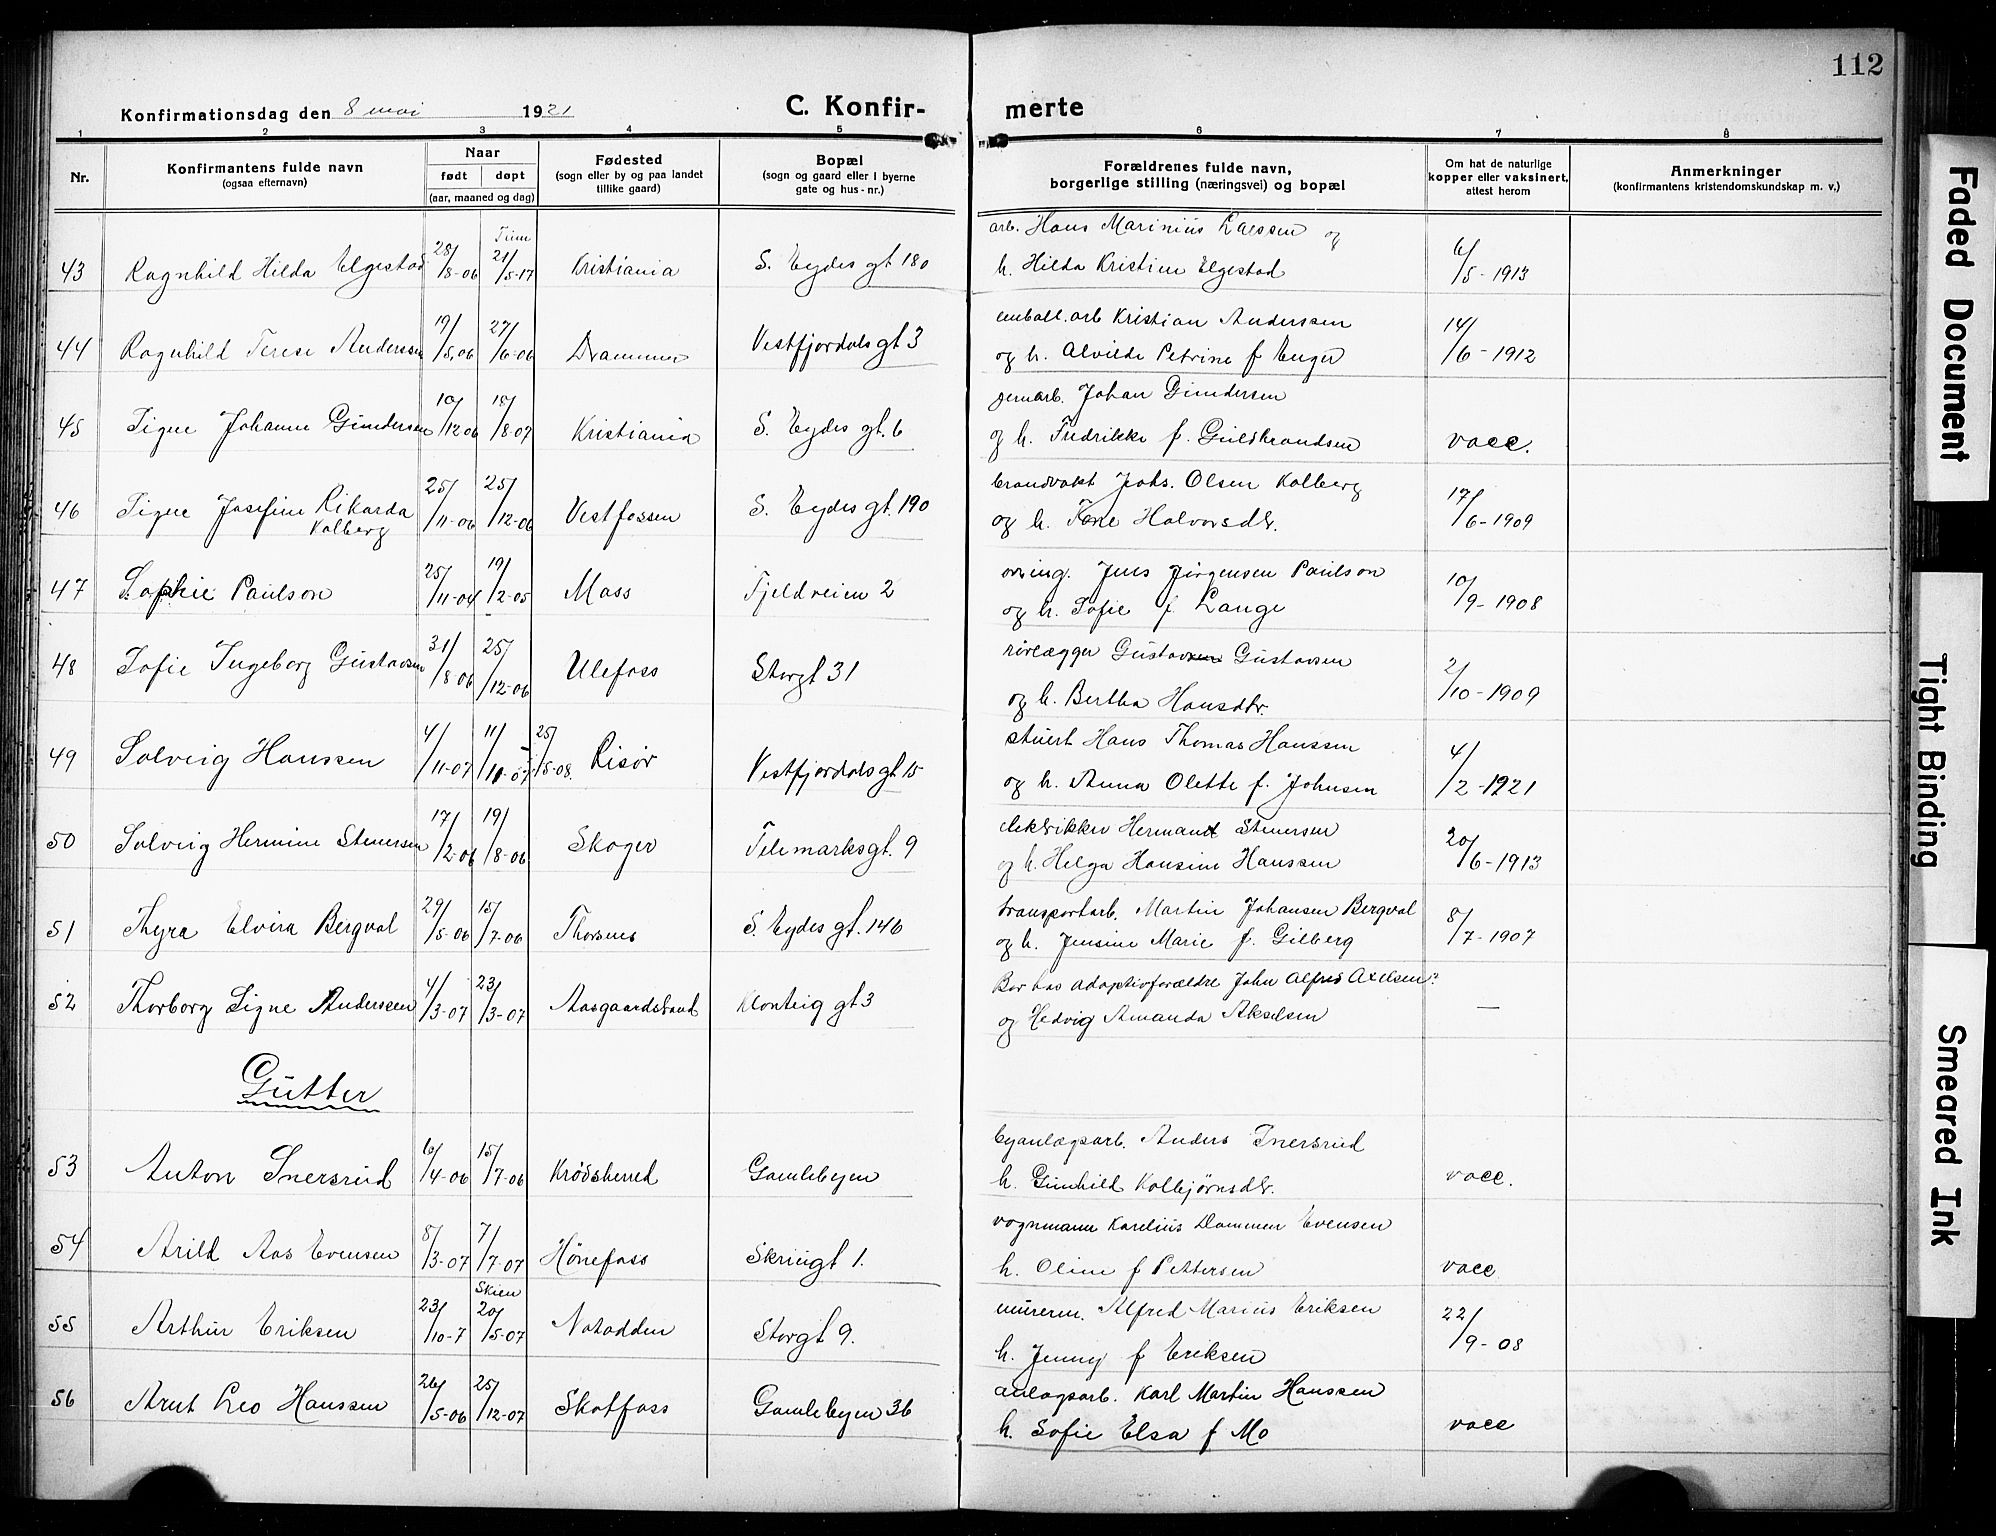 112
Konfirmationsdag den 8 mai 1921
C. Konfir-
merte
1 2 3 4 5 6 7 8
Nr.
Konfirmantens fulde navn
(ogsaa efternavn)
Naar
født døpt
(aar, maaned og dag)
Fødested
(sogn eller by og paa landet
tillike gaard)
Bopæl
(sogn og gaard eller i byerne
gate og hus-nr.)
Forældrenes fulde navn,
borgerlige stilling (næringsvei) og bopæl
Om hat de naturlige
kopper eller vaksinert,
attest herom
Anmerkninger
(konfirmantens kristendomskundskap m. v.)
arb. Hans Marinius Larssen og
43 Ragnhild Hilda Elgestad 28/8-06 21/5-17 Kristiania S. Eydes gt 180 h. Hilda Kristine Elgestad 6/5-1913
emball. arb Kristian Anderssen
44 Ragnhild Terese Anderssen 19/5.06 27/6-06 Drammen Vestfjordalsgt 3 og h. Alvilde Petrine f Enger 14/6-1912
jernarb. Johan Gundersen
45 Signe Johanne Gundersen 10/12 06 15/8-07 Kristiania S. Eydes gt. 6 og h. Fredrikke f. Gulbrandsen vacc.
brandvakt Johs. Olsen Kolberg
46 Signe Josefine Rikarda
Kolberg 25/11-06 25/12-06 Vestfossen S. Eydes gt. 190 og h. Tone Halvorsdtr. 17/6-1909
Jens Jörgensen Paulson
47 Sophie Paulson 25/11-04 19/2-05 Moss Fjeldveien 2 og h. Sofie f Lange 10/9-1908
rörlægger Gustavsen Gustavsen
48 Sofie Ingeborg Gustavsen 31/8-06 25/12-06 Ulefoss Storgt 31 og h. Bertha Hansdtr. 2/10-1909
stuert Hans Thomas Hanssen
49 Solveig Hanssen 4/11-07 11/11-07 25/5-08. Risör Vestfjordalsgt 15 og h. Anna Olette f. Johnsen 4/2-1921
elektriker Hermand Stenersen
50 Solveig Hermine Stenersen 17/2-06 19/8-06 Skoger Telemarksgt. 9 og h. Helga Hansine Hanssen 20/6-1913
transportarb. Martin Johansen Bergval
51 Thyra Elvira Bergval 29/5-06 15/7-06 Thorsnes S. Eydes gt. 146 og h. Jensine Marie f. Gilberg 8/7-1907
Bor hos adoptivforældre John Alfred Axelsen
52 Thorborg Signe Anderssen 4/3-07 23/3-07 Aasgaardstrand Klonteig gt 3 og Hedvig Amanda Akselsen —
Gutter
byanlægsarb. Anders Snersrud
53 Anton Snersrud 6/4-06 15/7-06 Krödsherred Gamlebyen h. Gunhild Kolbjörnsdtr. vacc.
vognmann Karelius Dammen Evensen
54 Arild Aas Evensen 8/3-07 7/7-07 Hönefoss Skriugt 1. h. Oline f Pettersen vacc
Skien
murerm. Alfred Marius Eriksen
55 Arthur Eriksen 23/10-7 20/5-07 Notodden Storgt 9. h. Jenny f Eriksen 22/9-08
anlægsarb. Karl Martin Hanssen
56 Arnt Leo Hanssen 26/5-06 25/12-07 Skotfoss Gamlebyen 36 h. Sofie Elsa f Mo vacc
Faded Document
Tight Binding
Smeared Ink